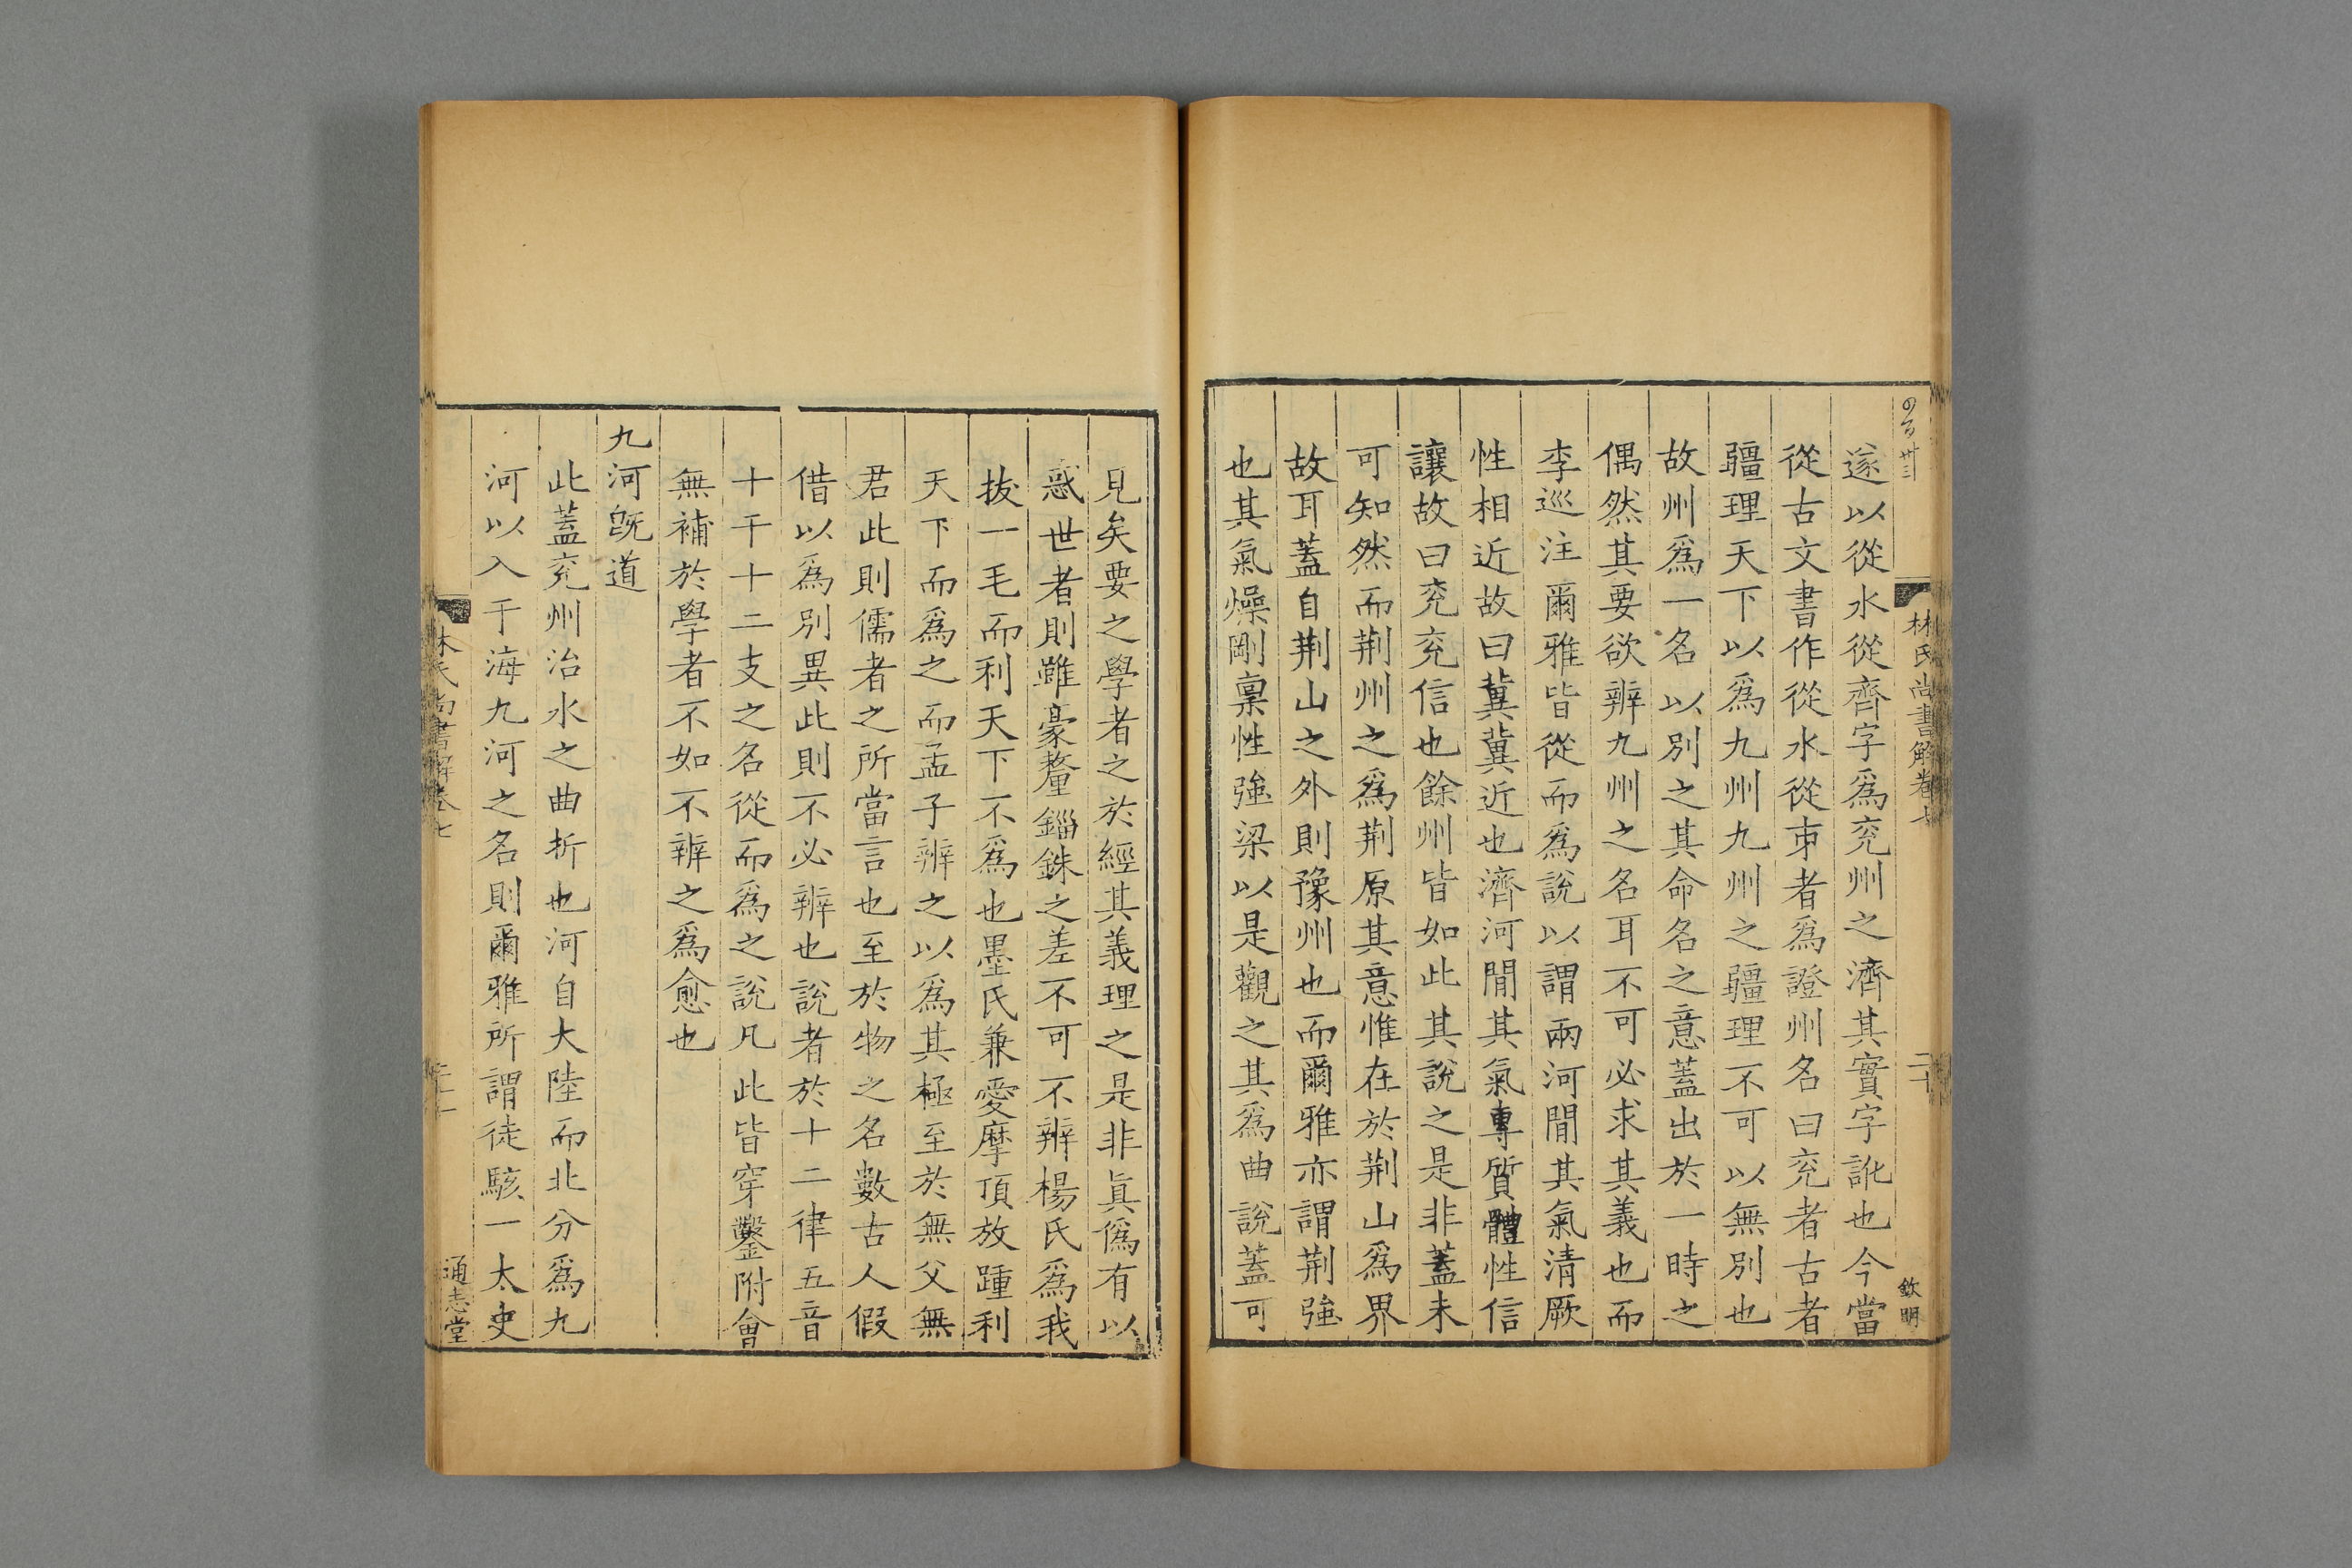 四百卅三
林氏尚書解卷七
二十
欽明
遂以從水從齊字爲兗州之濟其實字訛也今當
從古文書作從水從𠂔者爲證州名曰兗者古者
疆理天下以爲九州九州之疆理不可以無別也
故州爲一名以別之其命名之意蓋出於一時之
偶然其要欲辨九州之名耳不可必求其義也而
李巡注爾雅皆從而爲說以謂兩河閒其氣清厥
性相近故曰冀冀近也濟河閒其氣專質體性信
讓故曰兗兗信也餘州皆如此其說之是非蓋未
可知然而荆州之爲荆原其意惟在於荆山爲界
故耳蓋自荆山之外則豫州也而爾雅亦謂荆強
也其氣燥剛稟性強梁以是觀之其爲曲說蓋可
見矣要之學者之於經其義理之是非眞僞有以
惑世者則雖豪釐錙銖之差不可不辨楊氏爲我
拔一毛而利天下不爲也墨氏兼愛摩頂放踵利
天下而爲之而孟子辨之以爲其極至於無父無
君此則儒者之所當言也至於物之名數古人假
借以爲別異此則不必辨也說者於十二律五音
十干十二支之名從而爲之說凡此皆穿鑿附會
無補於學者不如不辨之爲愈也
九河旣道
此蓋兗州治水之曲折也河自大陸而北分爲九
河以入于海九河之名則爾雅所謂徒駭一太史
林氏尚書解卷七
二十一
通志堂